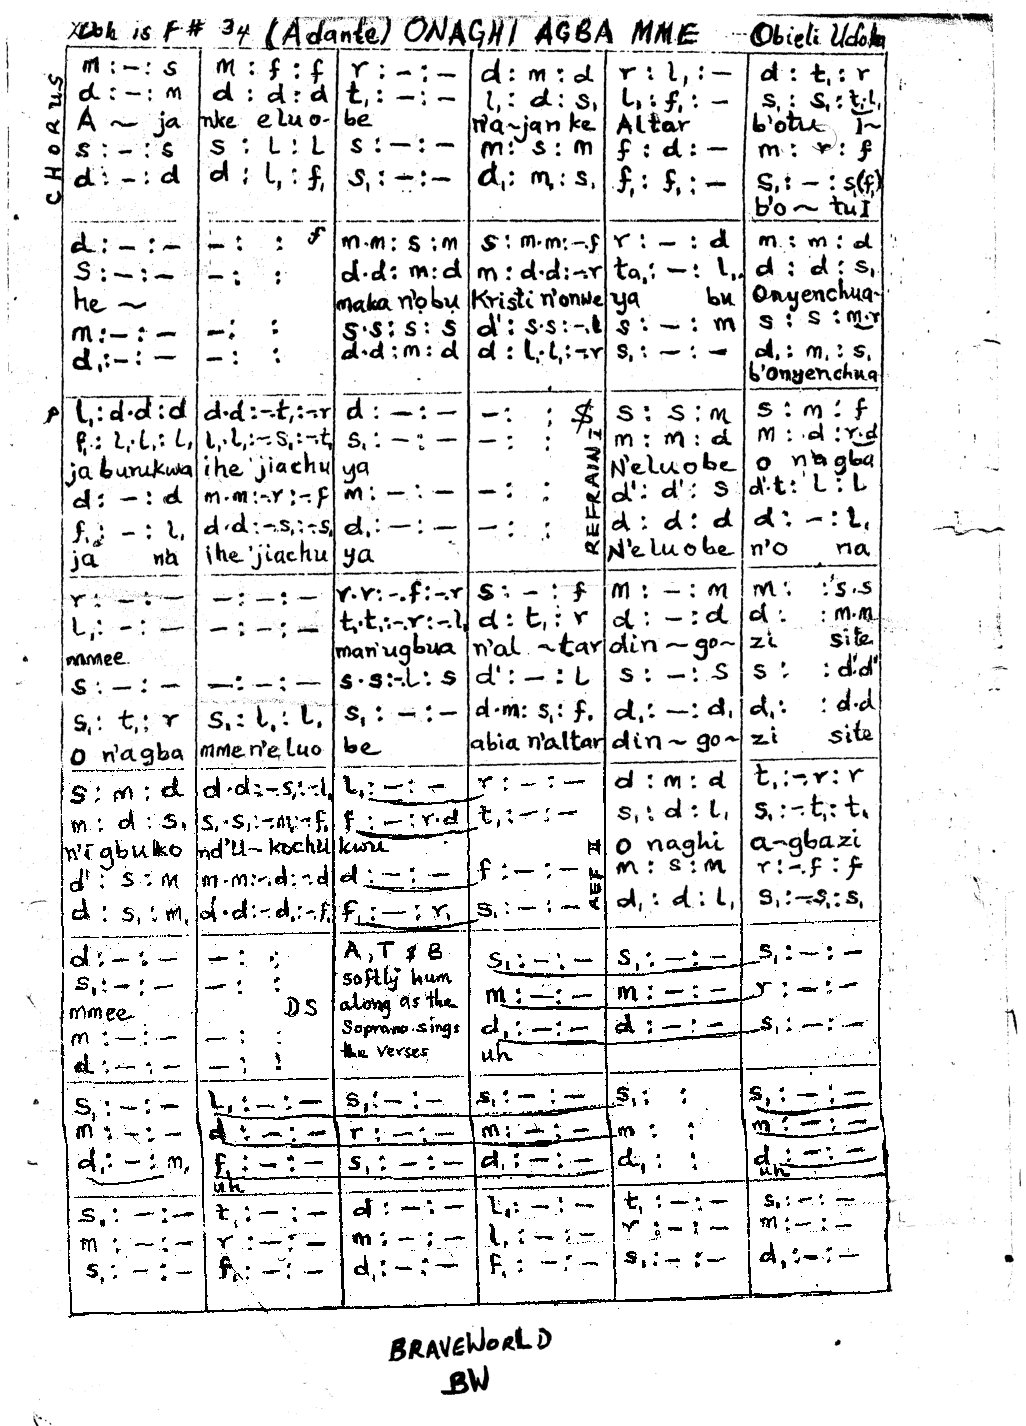 Doh is F# 3/4 (Adante) ONAGHI AGBA MME Obieli Udoka
CHORUS
m : – : s | m : f : f | r : – : – | d : m : d | r : l, : – | d : t, : r
d : – : m | d : d : d | t, : – : – | l, : d : s, | l, : f, : – | s, : s, : t,.l,
A ~ ja | nke eluo- | be | n'a~janke | Altar | b'otu I~
s : – : s | s : l : l | s : – : – | m : s : m | f : d : – | m : r : f
d : – : d | d : l, : f, | s, : – : – | d, : m, : s, | f, : f, : – | s, : – : s,(f,)
b'o ~ tu I
d : – : – | – : : f | m.m : s : m | s : m.m : –.f | r : – : d | m : m : d
s : – : – | – : : | d.d : m : d | m : d.d : –.r | ta, : – : l, | d : d : s,
he ~ | maka n'obu | Kristi n'onwe | ya bu | Onyenchua-
m : – : – | – : : | s.s : s : s | d' : s.s : –.l | s : – : m | s : s : m.r
d, : – : – | – : : | d.d : m : d | d : l,.l, : –.r | s, : – : – | d, : m, : s,
b'onyenchua
p l, : d.d : d | d.d : –.t, : –.r | d : – : – | – : : | $ REFRAIN I s : s : m | s : m : f
f, : l,.l, : l, | l,.l, : –.s, : –.t, | s, : – : – | – : : | m : m : d | m : d : r.d
ja burukwa | ihe 'jiachu | ya | N'eluobe | o n'agba
d : – : d | m.m : –.r : –.f | m : – : – | – : : | d' : d' : s | d'.t : l : l
f, : – : l, | d.d : –.s, : –.s, | d, : – : – | – : : | d : d : d | d : – : l,
ja na | ihe 'jiachu | ya | N'eluobe | n'o na
r : – : – | – : – : – | r.r : –.f : –.r | s : – : f | m : – : m | m : : s.s
l, : – : – | – : – : – | t,.t, : –.r : –.l, | d : t, : r | d : – : d | d : : m.m
mmee | man'ugbua | n'al ~tar | din ~ go~ | zi site
s : – : – | – : – : – | s.s : –.l : s | d' : – : l | s : – : s | s : : d'.d'
s, : t, : r | s, : l, : l, | s, : – : – | d.m : s, : f, | d, : – : d, | d, : : d.d
o n'agba | mme n'eluo | be | abia n'altar | din ~ go~ | zi site
s : m : d | d.d : –.s, : –.l, | l, : – : – | r : – : – | d : m : d | t, : –.r : r
m : d : s, | s,.s, : –.m, : –.f, | f : – : r.d | t, : – : – | s, : d : l, | s, : –.t, : t,
n'igbuko | nd'u~kochu | kwu | REF II o naghi | a-gbazi
d' : s : m | m.m : –.d : –.d | d : – : – | f : – : – | m : s : m | r : –.f : f
d : s, : m, | d.d : –.d, : –.f, | f, : – : r, | s, : – : – | d, : d : l, | s, : –.s, : s,
d : – : – | – : : | A, T & B | s, : – : – | s, : – : – | s, : – : –
s, : – : – | – : : | softly hum | m : – : – | m : – : – | r : – : –
mmee | DS | along as the | d, : – : – | d : – : – | s, : – : –
m : – : – | – : : | Soprano sings | uh
d : – : – | – : : | the verses
s, : – : – | l, : – : – | s, : – : – | s, : – : – | s, : : | s, : – : –
m : – : – | d : – : – | r : – : – | m : – : – | m : : | m : – : –
d, : – : m, | f, : – : – | s, : – : – | d, : – : – | d, : : | d, : – : –
uh | uh
s, : – : – | t, : – : – | d : – : – | l, : – : – | t, : – : – | s, : – : –
m : – : – | r : – : – | m : – : – | l, : – : – | r : – : – | m : – : –
s, : – : – | f, : – : – | d, : – : – | f, : – : – | s, : – : – | d, : – : –
BRAVEWORLD
BW